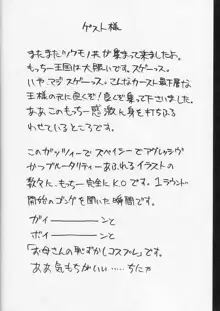 ゲスト様
またまたツワモノ共が集まって来ましたよ。
もっちー王国は大賑いです。スゲーっス。
ハヤ マジ スゲーっス。こんなカースト最下層な
王様の元に良くぞ!良くぞ集って下さいました。
ああこのもっちー感激に身を打ちふる
わせているところです。
このガッツィーで スペイシーで アグレッシヴ
かつブルータリティーあふれるイラストの
数々に、もっちー完全にK.Oです。1ラウンド
開始のゴングを聞いた瞬間です。
ガィーーーーンと
ボィーーーーンと
「お母さんの恥ずかしコスプレ」です。
ああ気もちがいい……